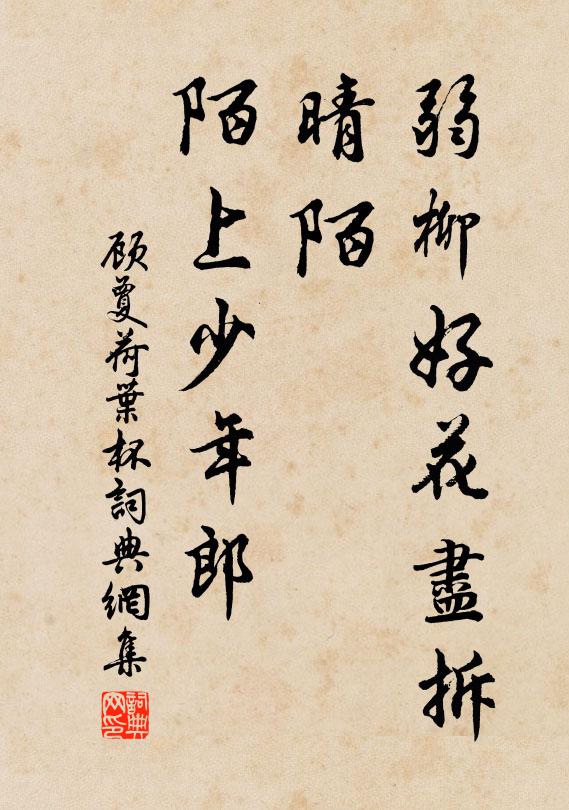 弱柳好花盡拆
晴陌
陌上少年郎
顧夐荷葉杯詞典網集
詞典網印